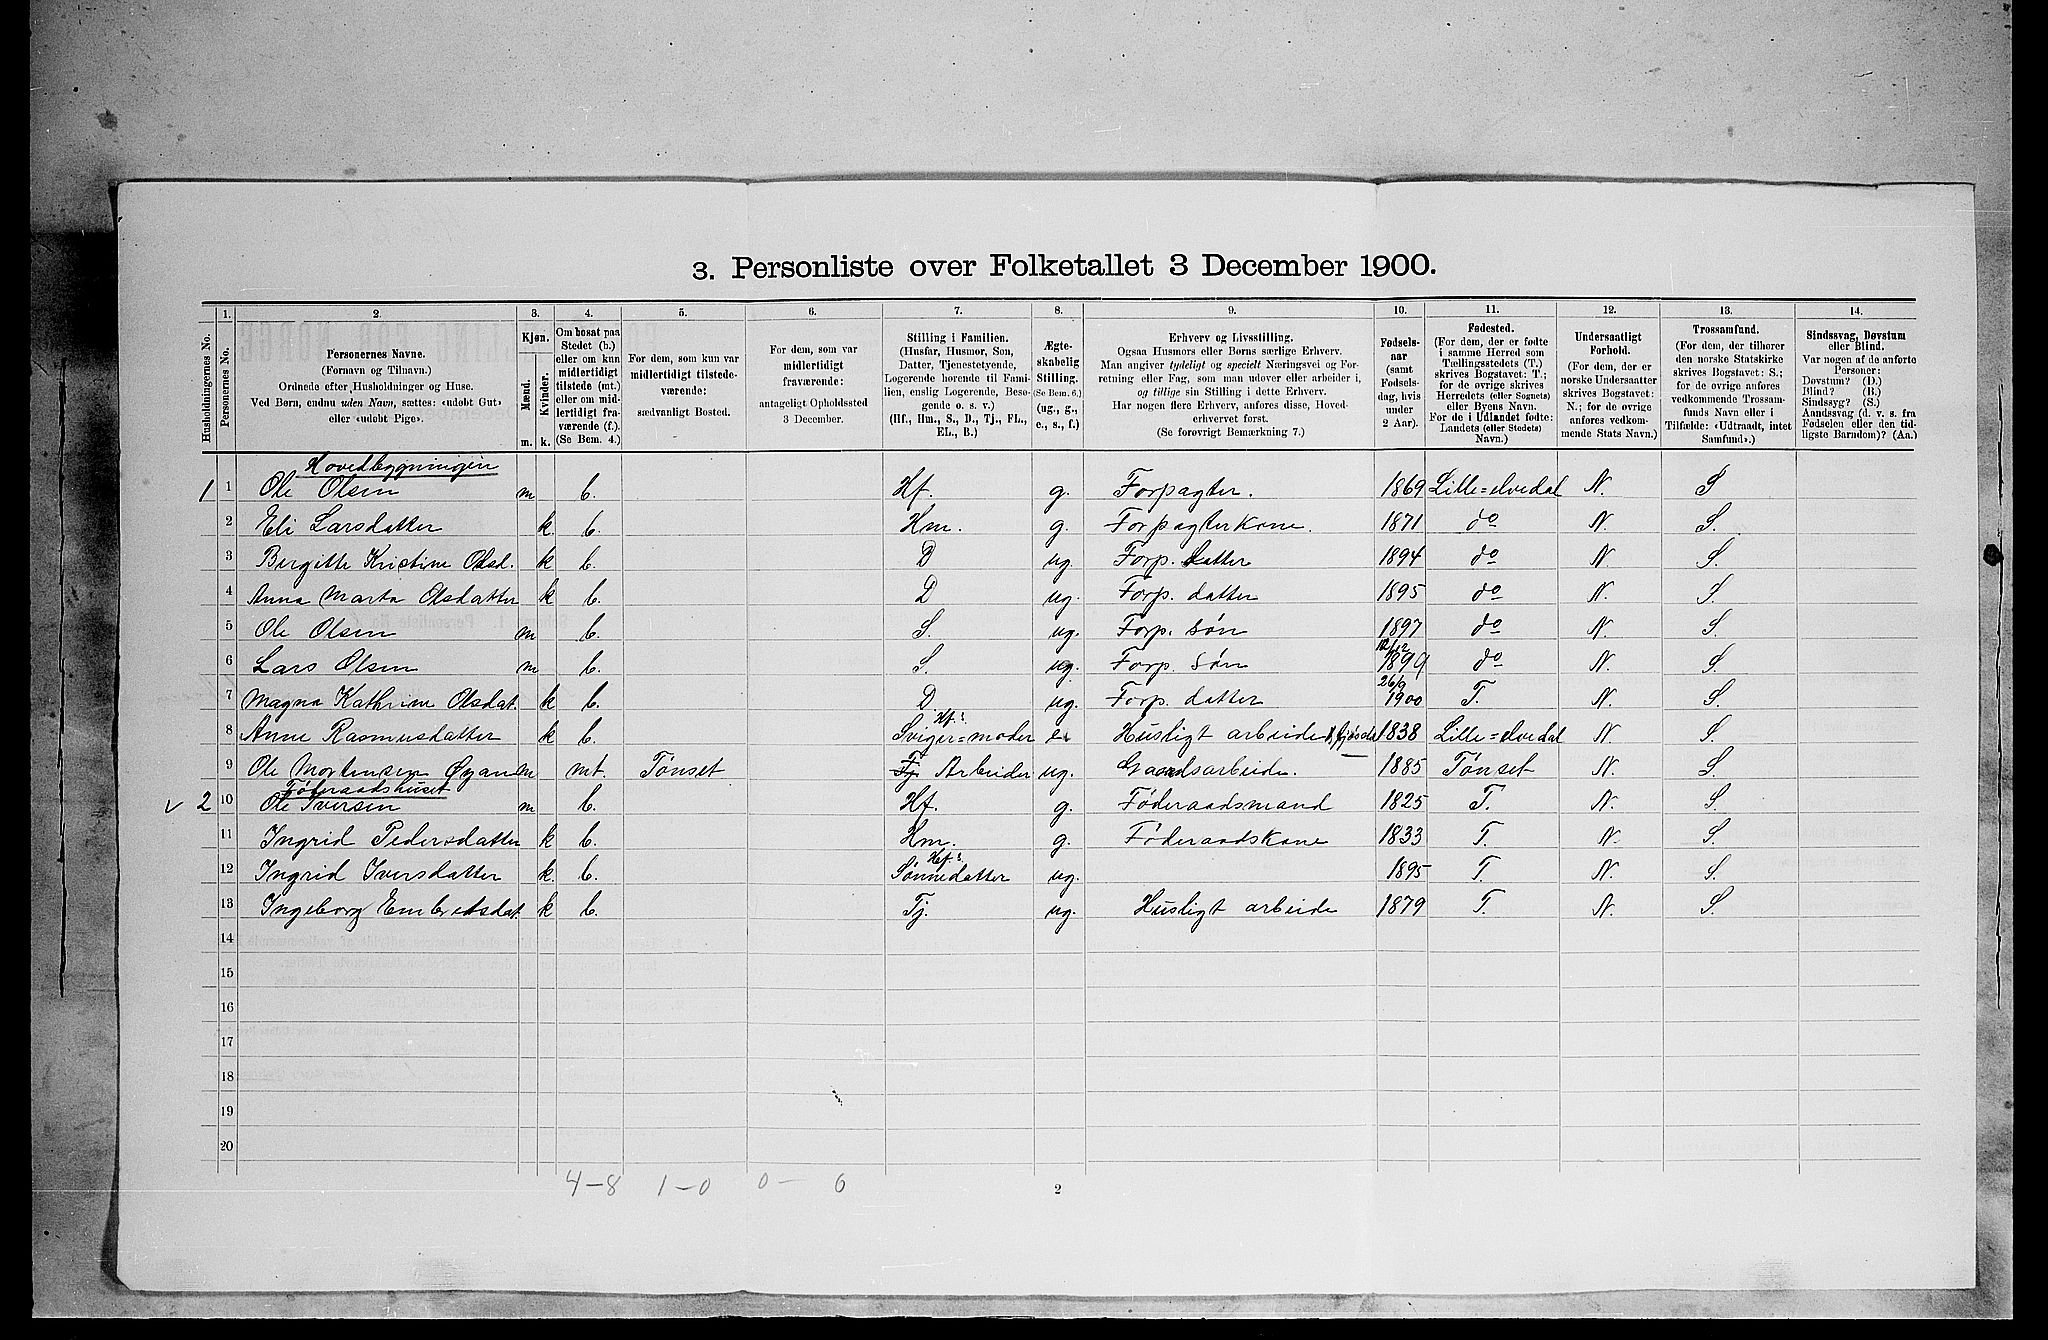 3. Personliste over Folketallet 3 December 1900.
Husholdningernes No.
1.
Personernes No.
2.
Personernes Navne.
(Fornavn og Tilnavn.)
Ordnede efter Husholdninger og Huse.
Ved Børn, endnu uden Navn, sættes: «udøbt Gut»
eller «udøbt Pige».
3.
Kjøn.
Mænd.
Kvinder.
m. k.
4.
Om bosat paa
Stedet (b.)
eller om kun
midlertidigt
tilstede (mt.)
eller om mid-
lertidigt fra-
værende (f.).
(Se Bem. 4.)
5.
For dem, som kun var
midlertidigt tilstede-
værende:
sædvanligt Bosted.
6.
For dem, som var
midlertidigt
fraværende:
antageligt Opholdssted
3 December.
7.
Stilling i Familien.
(Husfar, Husmor, Søn,
Datter, Tjenestetyende,
Logerende hørende til Fami-
lien, enslig Logerende, Besø-
gende o. s. v.)
(Hf., Hm., S., D., Tj., FL.,
EL., B.)
8.
Ægte-
skabelig
Stilling.
(Se Bem. 6.)
(ug., g.,
e., s., f.)
9.
Erhverv og Livsstilling.
Ogsaa Husmors eller Børns særlige Erhverv.
Man angiver tydeligt og specielt Næringsvei og For-
retning eller Fag, som man udøver eller arbeider i,
og tillige sin Stilling i dette Erhverv.
Har nogen flere Erhverv, anføres disse, Hoved-
erhvervet først.
(Se forøvrigt Bemærkning 7.)
10.
Fødsels-
aar
(samt
Fødsels-
dag, hvis
under
2 Aar).
11.
Fødested.
(For dem, der er fødte
i samme Herred som
Tællingsstedets (T.)
skrives Bogstavet: T.;
for de øvrige skrives
Herredets (eller Sognets)
eller Byens Navn.
For de i Udlandet fødte:
Landets (eller Stedets)
Navn.)
12.
Undersaatligt
Forhold.
(For dem, der er
norske Undersaatter
skrives Bogstavet:
N.; for de øvrige
anføres vedkom-
mende Stats Navn.)
13.
Trossamfund.
(For dem, der tilhører
den norske Statskirke
skrives Bogstavet: S.;
for de øvrige anføres
vedkommende Trossam-
funds Navn eller i
Tilfælde: «Udtraadt, intet
Samfund».)
14.
Sindssvag, Døvstum
eller Blind.
Var nogen af de anførte
Personer:
Døvstum? (D.)
Blind? (B.)
Sindssyg? (S.)
Aandssvag (d. v. s. fra
Fødselen eller den tid-
ligste Barndom)? (Aa.)
Hovedbygningen
1 1 Ole Olsen m b. Hf. g. Forpagter. 1869 Lille=elvedal N. S
2 Eli Larsdatter k b. Hm. g. Forpagterkone. 1871 do N. S.
3 Birgitte Kristine Olsd. k b. D ug. Forp. datter 1894 do N. S.
4 Anna Marta Olsdatter k b. D ug. Forp. datter 1895 do N. S.
5 Ole Olsen m b. S. ug. Forp. søn 1897 do N. S.
6 Lars Olsen m b. S. ug. Forp. søn 1899 do N. S.
26/9
7 Magna Kathrine Olsdat. k b. D ug. Forp. datter 1900 T. N. S.
Hf.s
8 Anne Rasmusdatter k b. Sviger=moder e. Husligt arbeide 1838 Lille=elvedal N. S.
9 Ole Mortensen Øyan m mt. Tønset Tj Arbeider ug. Gaardsarbeide. 1885 Tønset N. S.
Føderaadshuset
2 10 Ole Iversen m b. Hf. g. Føderaadsmand 1825 T. N. S.
11 Ingrid Pedersdatter k b. Hm. g. Føderaadskone 1833 T. N. S.
Hf.s
12 Ingrid Iversdatter k. b. Sønnedatter ug. 1895 T. N. S.
13 Ingeborg Embretsdat. k b. Tj. ug. Husligt arbeide 1879 T. N. S.
14
15
16
17
18
19
20
4-8 1-0 0- 0
2